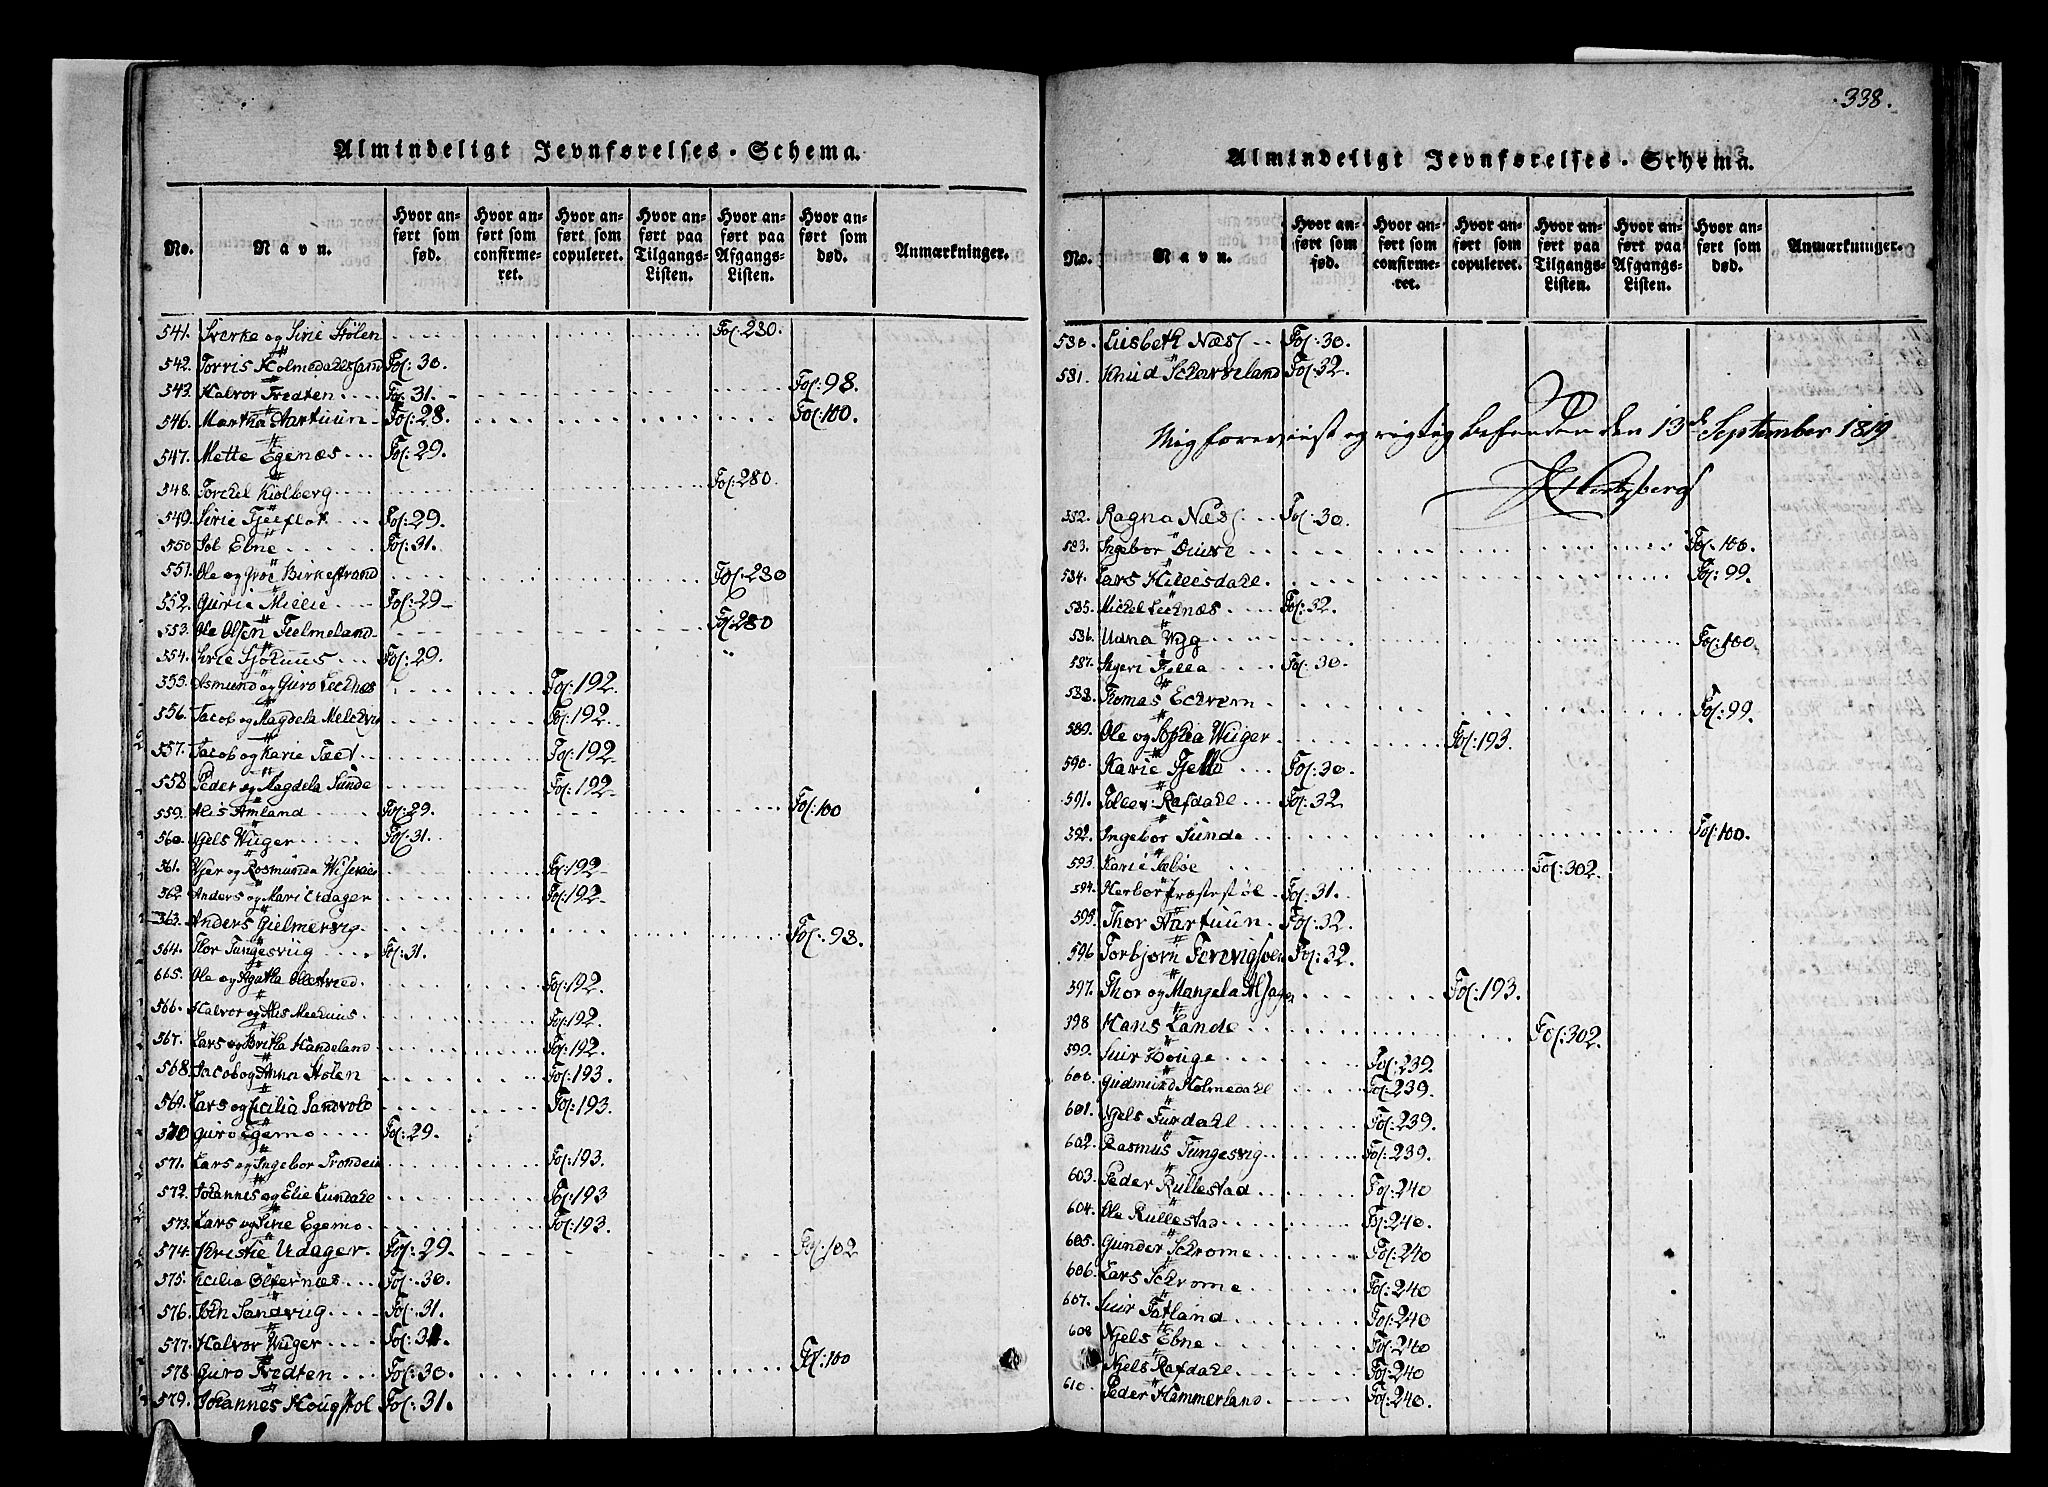 338.
Almindeligt Jevnførelses-Schema.
No. Navn. Hvor anført som fød. Hvor anført som confirmeret. Hvor anført som copuleret. Hvor anført paa Tilgangs-Listen. Hvor anført paa Afgangs-Listen. Hvor anført som død. Anmærkninger.
541. Sverke og Sirie Stölen Fol: 280.
542. Torris Holmedahlssand Fol: 30.
543. Halvor Tredten Fol: 31. Fol: 98.
546. Martha Aartuun Fol: 28. Fol: 100.
547. Mette Egenæs Fol: 29.
548. Torchel Kiolberg Fol: 280.
549. Sirie Fjeeflot Fol: 29.
550 Job Ebne Fol: 31.
551. Ole og Groe Birkestrand Fol: 280
552. Gurie Millie Fol: 29
553. Ole Olsen Fielmeland Fol: 280
554. Sirie Fol: 29.
555. Asmund og Guro Lechnæs Fol: 192.
556. Jacob og Magdela Fol: 192.
557. Jacob og Karie Teet Fol: 192
558 Peder og Magdela Sunde Fol: 192
559. Alis Amland Fol: 29. Fol: 100
560. Njels Wuger Fol: 31.
561. og Rosmunda Fol: 192
562 Anders og Mari Udager Fol: 192
563. Anders Gielmervig Fol: 98.
564. Thor Tungesviig Fol: 31.
565. Ole og Agatha Fol: 192.
566. Halvor og Alis Fol: 192.
567. Lars og Britha Handeland Fol: 192.
568. Jacob og Anna Stölen Fol: 193.
569. Lars og Cicilia Sandvold Fol: 193.
570 Guro Egemo Fol: 29.
571. Lars og Ingebor Fol: 193.
572. Johannes og Elie Lundahl Fol: 193
573. Lars og Sirie Egemo Fol: 193.
574. Christie Udager Fol: 29. Fol: 102
575. Cicilia Ølfernæs Fol: 30.
576. John Sandviig Fol: 31.
577. Halvor Wuger Fol: 31.
578. Guro Tredten Fol: 30. Fol: 100
579. Johannes Hougstol Fol: 31.
Almindeligt Jevnførelses-Schema.
No. Navn. Hvor anført som fød. Hvor anført som confirmeret. Hvor anført som copuleret. Hvor anført paa Tilgangs-Listen. Hvor anført paa Afgangs-Listen. Hvor anført som død. Anmærkninger.
580. Liisbeth Næss Fol: 30.
581. Knud Scharveland Fol: 32.
Mig foreviist og rigtig befunden den 13de September 1819
Hertzberg
582. Ragna Næss Fol: 30.
583. Ingebor Fol: 100.
584. Lars Hillesdahl Fol: 99.
585. Michel Lechnæs Fol: 32.
586. Udna Fol: 100.
587. Sigeri Fjella Fol: 30.
588. Thomas Echrem Fol: 99.
589. Ole og Sophia Wuger Fol: 193.
590. Karie Fjella Fol: 30.
591. Tollev Rafdahl Fol: 32
592. Ingebor Sunde Fol: 100.
593. Karie Fol: 302.
594. Herbor Præstestöl Fol: 31.
595. Thor Aartuun Fol: 32.
596 Torbjörn Fol: 32.
597. Thor og Mangela Alsager Fol: 193.
598 Hans Lande Fol: 302.
599. Siur Houge Fol: 239.
600. Gudmund Holmedahl Fol: 239.
601. Njels Furdahl Fol: 239.
602. Rasmus Tungesvig Fol: 239.
603. Peder Rullestad Fol: 240
604. Ole Rullestad Fol: 240.
605. Gunder Schrome Fol: 240
606. Lars Schrome Fol: 240
607. Siur Fatland Fol: 240
608 Njels Ebne Fol: 240
Njels Rafdahl Fol: 240
610. Peder Hammerland Fol: 240.